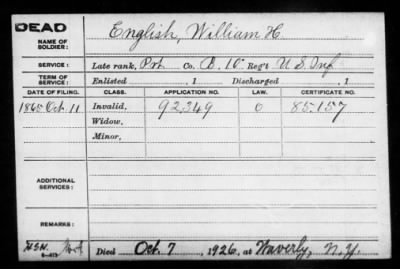 DEAD
NAME OF SOLDIER: English, William H.
SERVICE: Late rank, Pvt Co. B. 10" Reg't U.S. Inf
TERM OF SERVICE: Enlisted , 1 Discharged , 1
DATE OF FILING. CLASS. APPLICATION NO. LAW. CERTIFICATE NO.
1865 Oct. 11 Invalid, 92349 0 85.157
Widow,
Minor,
ADDITIONAL SERVICES:
REMARKS:
Died Oct. 7, 1926, at Waverly, N.Y.